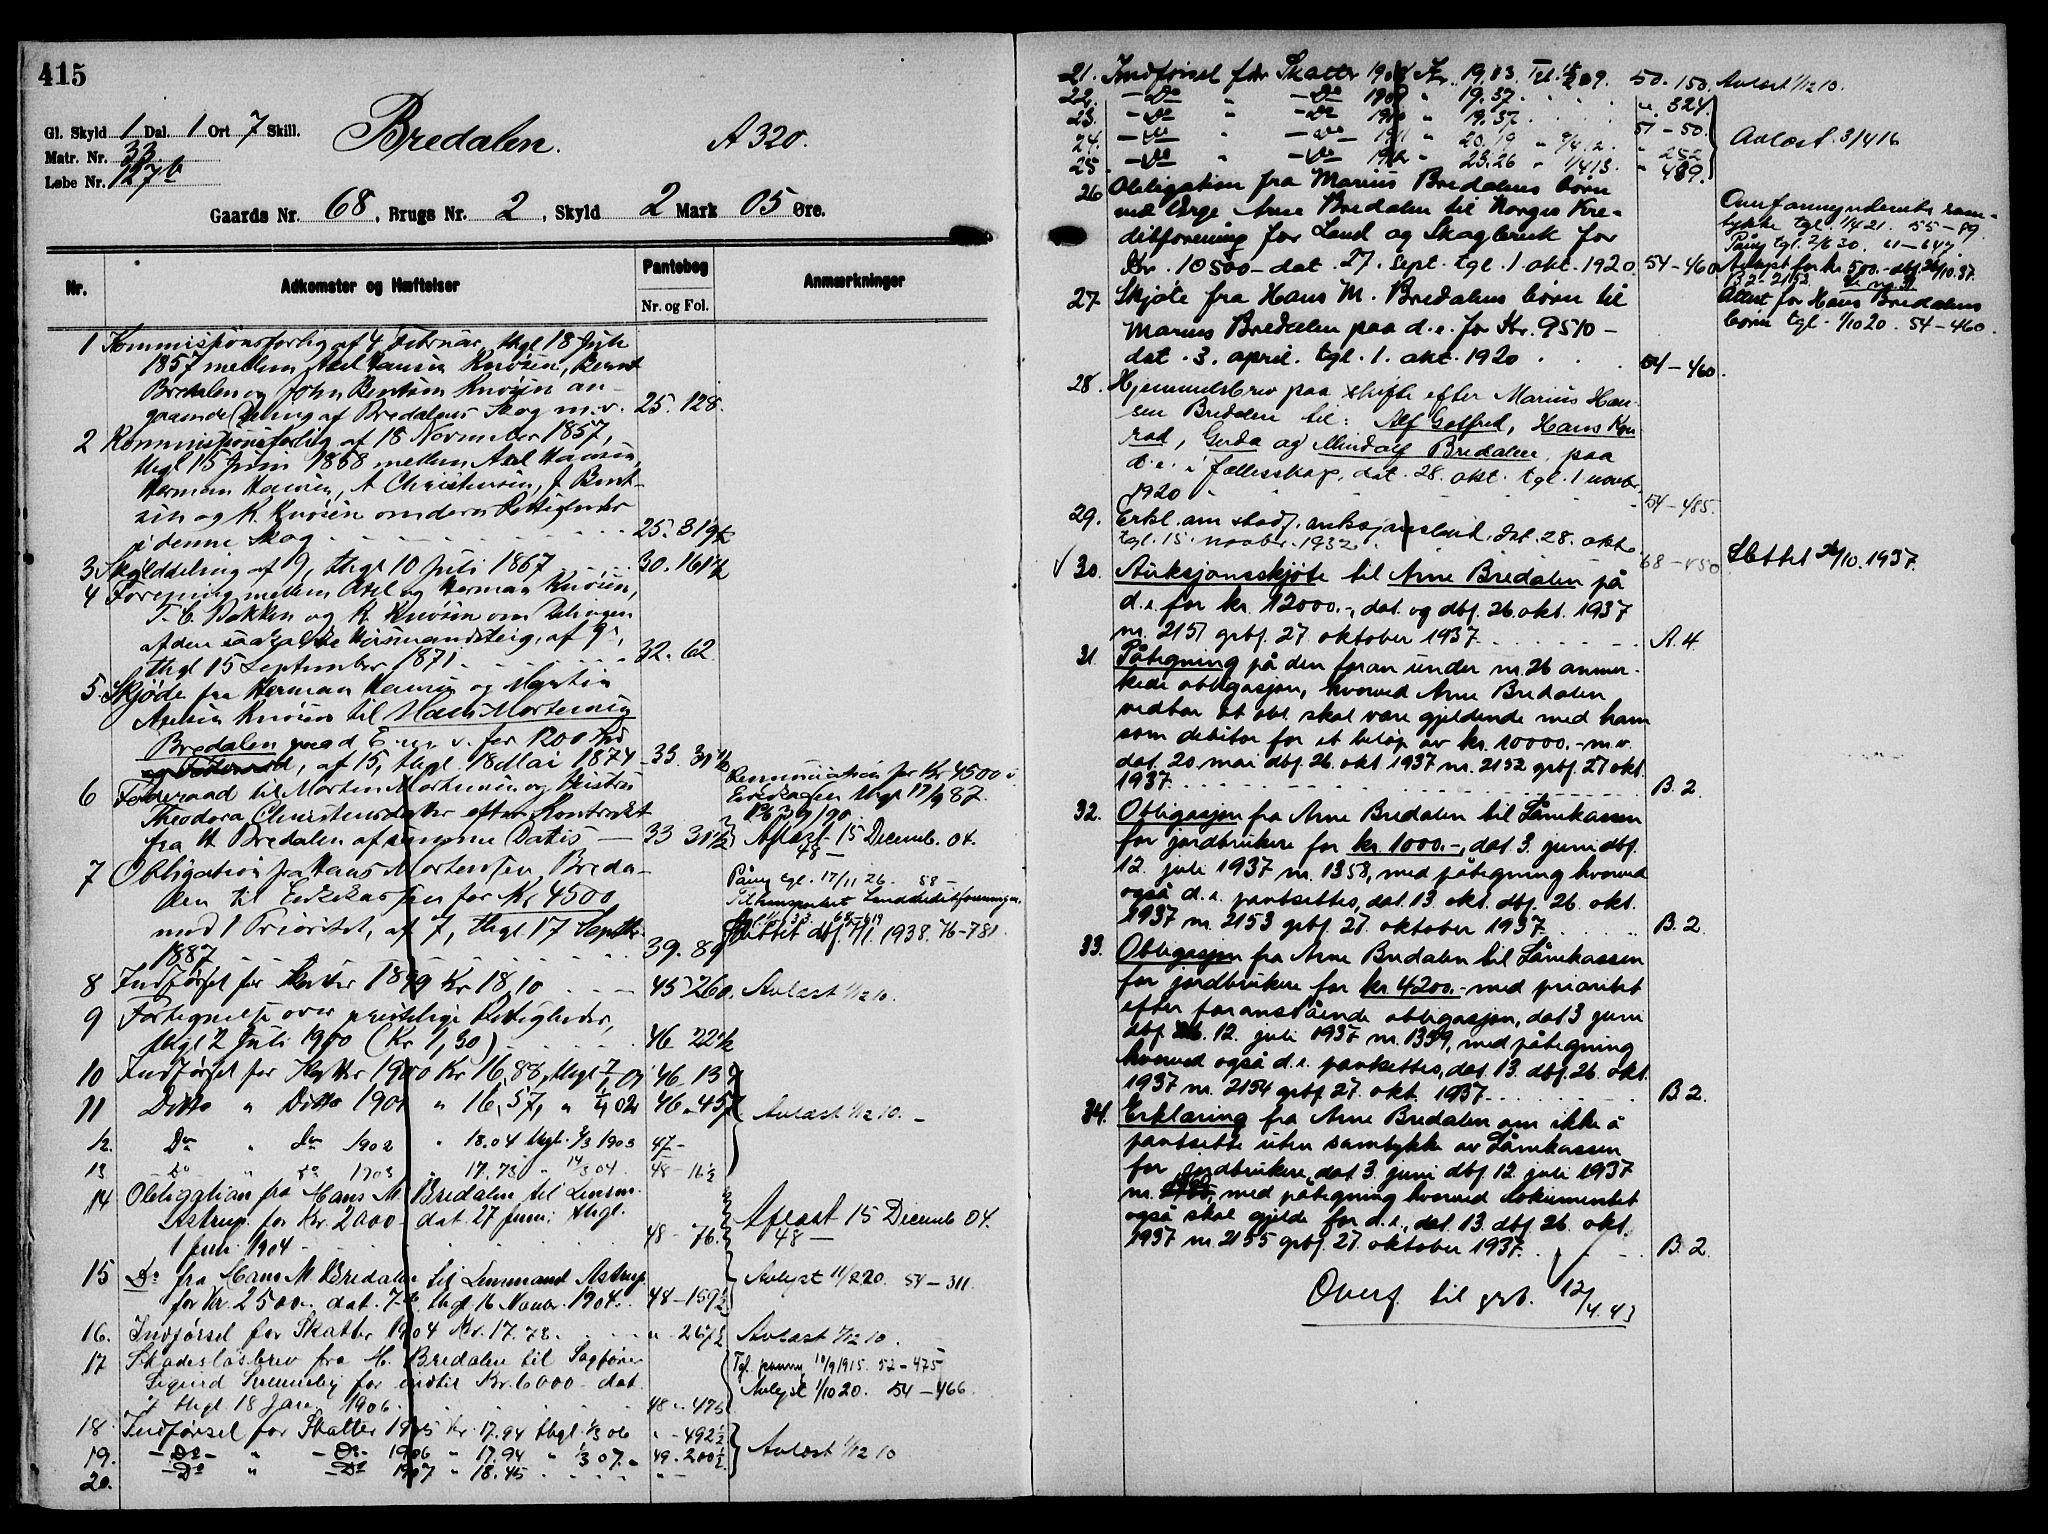 415
Gl. Skyld 1 Dal. 1 Ort 7 Skill.
Bredalen.
A 320.
Matr. Nr. 33
Løbe Nr. 127b
Gaards Nr. 68, Brugs Nr. 2, Skyld 2 Mark 05 Øre.
Nr.
Adkomster og Hæftelser
Pantebog
Nr. og Fol.
Anmærkninger
1 Kommissionsforlig af 4 Februar, thgl 18 Juli
1857 mellem Axel Hansen Knösen, Bernt
Bredalen og John Berntsen Knösen an-
gaaende Deling af Bredalens Skog m.v. 25. 128.
2 Kommissionsforlig af 18 November 1857,
thgl 15 Juni 1858 mellem Axel Hansen,
Herman Hansen, A Christensen, J. Bernt-
sen og K. Knösen om deres Rettigheder
i denne Skog 25. 319½
3. Skylddeling af 9, thgl 10 Juli 1867 30. 161½
4 Forening mellem Axel og Herman Knösen,
T. C. Bakken og K. Knösen om Delingen
af den saakaldte Husmandsteig, af 9,
thgl 15 September 1871. 32. 62
5. Skjøde fra Herman Hansen og Martin
Axelsen Knösen til Hans Mortensen
Bredalen paa d. E. m. v. for 1200 Spd
og Föderaad, af 15, thgl. 18 Mai 1874 33. 31½
6 Föderaad til Morten Mortensen og Hustru
Theodora Christensdatter efter Kontrakt
fra H Bredalen af samme Datis 33 31½
Renunciation for Kr 4500 i
Enkekassen thgl 17/9 87.
Aflæst 15 Decemb. 04.
48 —
7 Obligation fra Hans Mortensen Breda-
len til Enkekassen for Kr 4500
med 1 Prioritet, af 7, thgl. 17 Septbr.
1887 39. 89
Påny tgl. 17/11 26. 58 —
Slettet dbf. 7/1. 1938. 76-781.
8 Indförsel for Skatter 1899 Kr 18,10 45 260. Avlæst 1/12 10.
9 Fortegnelse over private Rettigheder,
thgl 2 Juli 1900 (Kr 1,30) 46 22½
10 Indførsel for Skatter 1900 Kr 16,88, thgl 46 13
11 Ditto " Ditto 1901 " 16,57, " 02 46 457
Avlæst 1/12 10. —
12. Do " do 1902 " 18.04 thgl. 2/3 1903 47 -
13 Do " Do 1903 " 17.73 " 14/3 04. 48 - 16½
14 Obligation fra Hans M Bredalen til Lensm.
Astrup for Kr. 2000 - dat. 27 Juni, thgl.
1 Juli 1904 48 - 76.
Aflæst 15 Decemb 04.
48 —
15 Do fra Hans M. Bredalen til Lensmand Astrup
for Kr. 2500. dat. 7 thgl 16 Novbr. 1904. 48 - 159½
Avlyst 11/2 20. 54 - 311.
16. Indførsel for Skatter 1904 Kr. 17.73. " 267½ Avlæst 1/12 10.
17 Skadesløsbrev fra H. Bredalen til Sagfører
for indtil Kr. 6000 - dat.
thgl 18 Jan. 1906. 48 - 473
Tgl. paany 10/9 1915. 52 - 475
Avlyst 1/10 20. 54 - 466.
18. Indførsel for Skatter 1905 Kr. 17.94 thgl. 1/3 06 " - 492½
19. - Do - " - Do - 1906 " 17.94 " 1/3 07. 49. 200½
20. - Do " - Do 1907 " 18.45
Avlæst 1/12 10
21. Indførsel for Skatter 1908 Kr. 19.03. Tgl. 09. 50. 150. Avlæst 1/12 10.
22. - Do " - Do 1909 " 19.37. " 324.
23. - Do " - Do 1910 " 19.37. 51 - 50.
24. - Do - Do 1911 " 20.19 " 9/4 12. " 252
25 - Do " - Do 1912 " 23.26 " 1/4 13. " 489.
Avlæst. 3/4 16
26 Obligation fra Marius Bredalens börn
ved Verge Arne Bredalen til Norges Kre-
ditforening for Land og Skogbruk for
Kr. 10500 - dat. 27. sept. tgl. 1 okt. 1920. 54 - 460
Overformynderiets sam-
tykke tgl. 1/4 21. 55 - 89.
Påny tgl. 2/6 30. 61 - 647
Avlyst for kr. 500.- dbf. 26/10.37.
B2 - 2152.
27. Skjøte fra Hans M. Bredalens børn til
Marius Bredalen paa d. e. for Kr. 9510 -
dat. 3. april. tgl. 1. okt. 1920 54 - 460.
Attest for Hans Bredalens
børn tgl. 1/10 20. 54 - 460.
28. Hjemmelsbrev paa skifte efter Marius Han-
sen Bredalen til: Alf Gotfred, Hans Kon-
rad, Gerda og Mindolf Bredalen, paa
d. e. i fællesskap, dat. 28. okt. tgl. 1 novbr.
1920 54 - 485.
29. Erkl. om stadf. auksjonsbud, dat. 28. okt.
tgl. 15. novbr. 1932. 68 - 450 Slettet 26/10. 1937.
√ 30. Auksjonsskjøte til Arne Bredalen på
d. e. for kr. 12000.-, dat. og dbf. 26. okt. 1937
nr. 2151 grbf. 27 oktober 1937. A. 4.
31. Påtegning på den foran under nr. 26 anmer-
kede obligasjon, hvorved Arne Bredalen
vedtar at obl. skal være gjeldende med ham
som debitor for et beløp av kr. 10000.- m.v.
dat. 20. mai dbf. 26. okt. 1937 nr. 2152 grbf. 27 okt.
1937. B. 2.
32. Obligasjon fra Arne Bredalen til Lånekassen
for jordbrukere for kr. 1000.-, dat. 3. juni dbf.
12. juli 1937 nr. 1358, med påtegning hvorved
også d. e. pantsettes, dat. 13. okt. dbf. 26. okt.
1937 nr. 2153 grbf. 27. oktober 1937. B. 2.
33. Obligasjon fra Arne Bredalen til Lånekassen
for jordbrukere for kr. 4200.- med prioritet
efter foranstående obligasjon, dat. 3 juni
dbf. 12. juli 1937 nr. 1359, med påtegning
hvorved også d. e. pantsettes, dat. 13. dbf. 26. okt.
1937 nr. 2154 grbf. 27. okt. 1937. B. 2.
34. Erklæring fra Arne Bredalen om ikke å
pantsette uten samtykke av Lånekassen
for jordbrukere, dat. 3. juni dbf. 12. juli 1937
nr. 1360, med påtegning hvorved dokumentet
også skal gjelde for d. e., dat. 13. dbf. 26. okt.
1937 nr. 2155 grbf. 27. oktober 1937. B. 2.
Overf. til grb. 12/4. 43